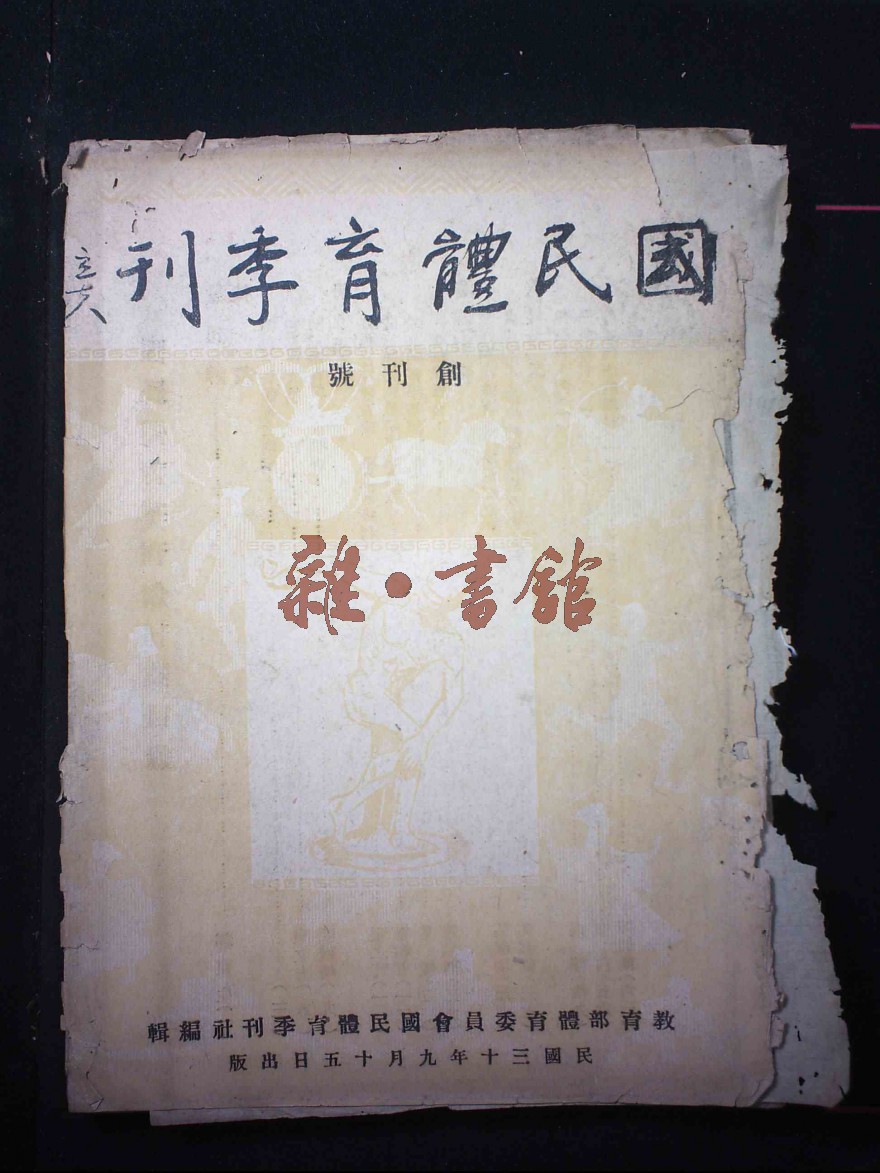 國民體育季刊
立夫
創刊號
雜·書館
教育部體育委員會國民體育季刊社編輯
民國三十年九月十五日出版